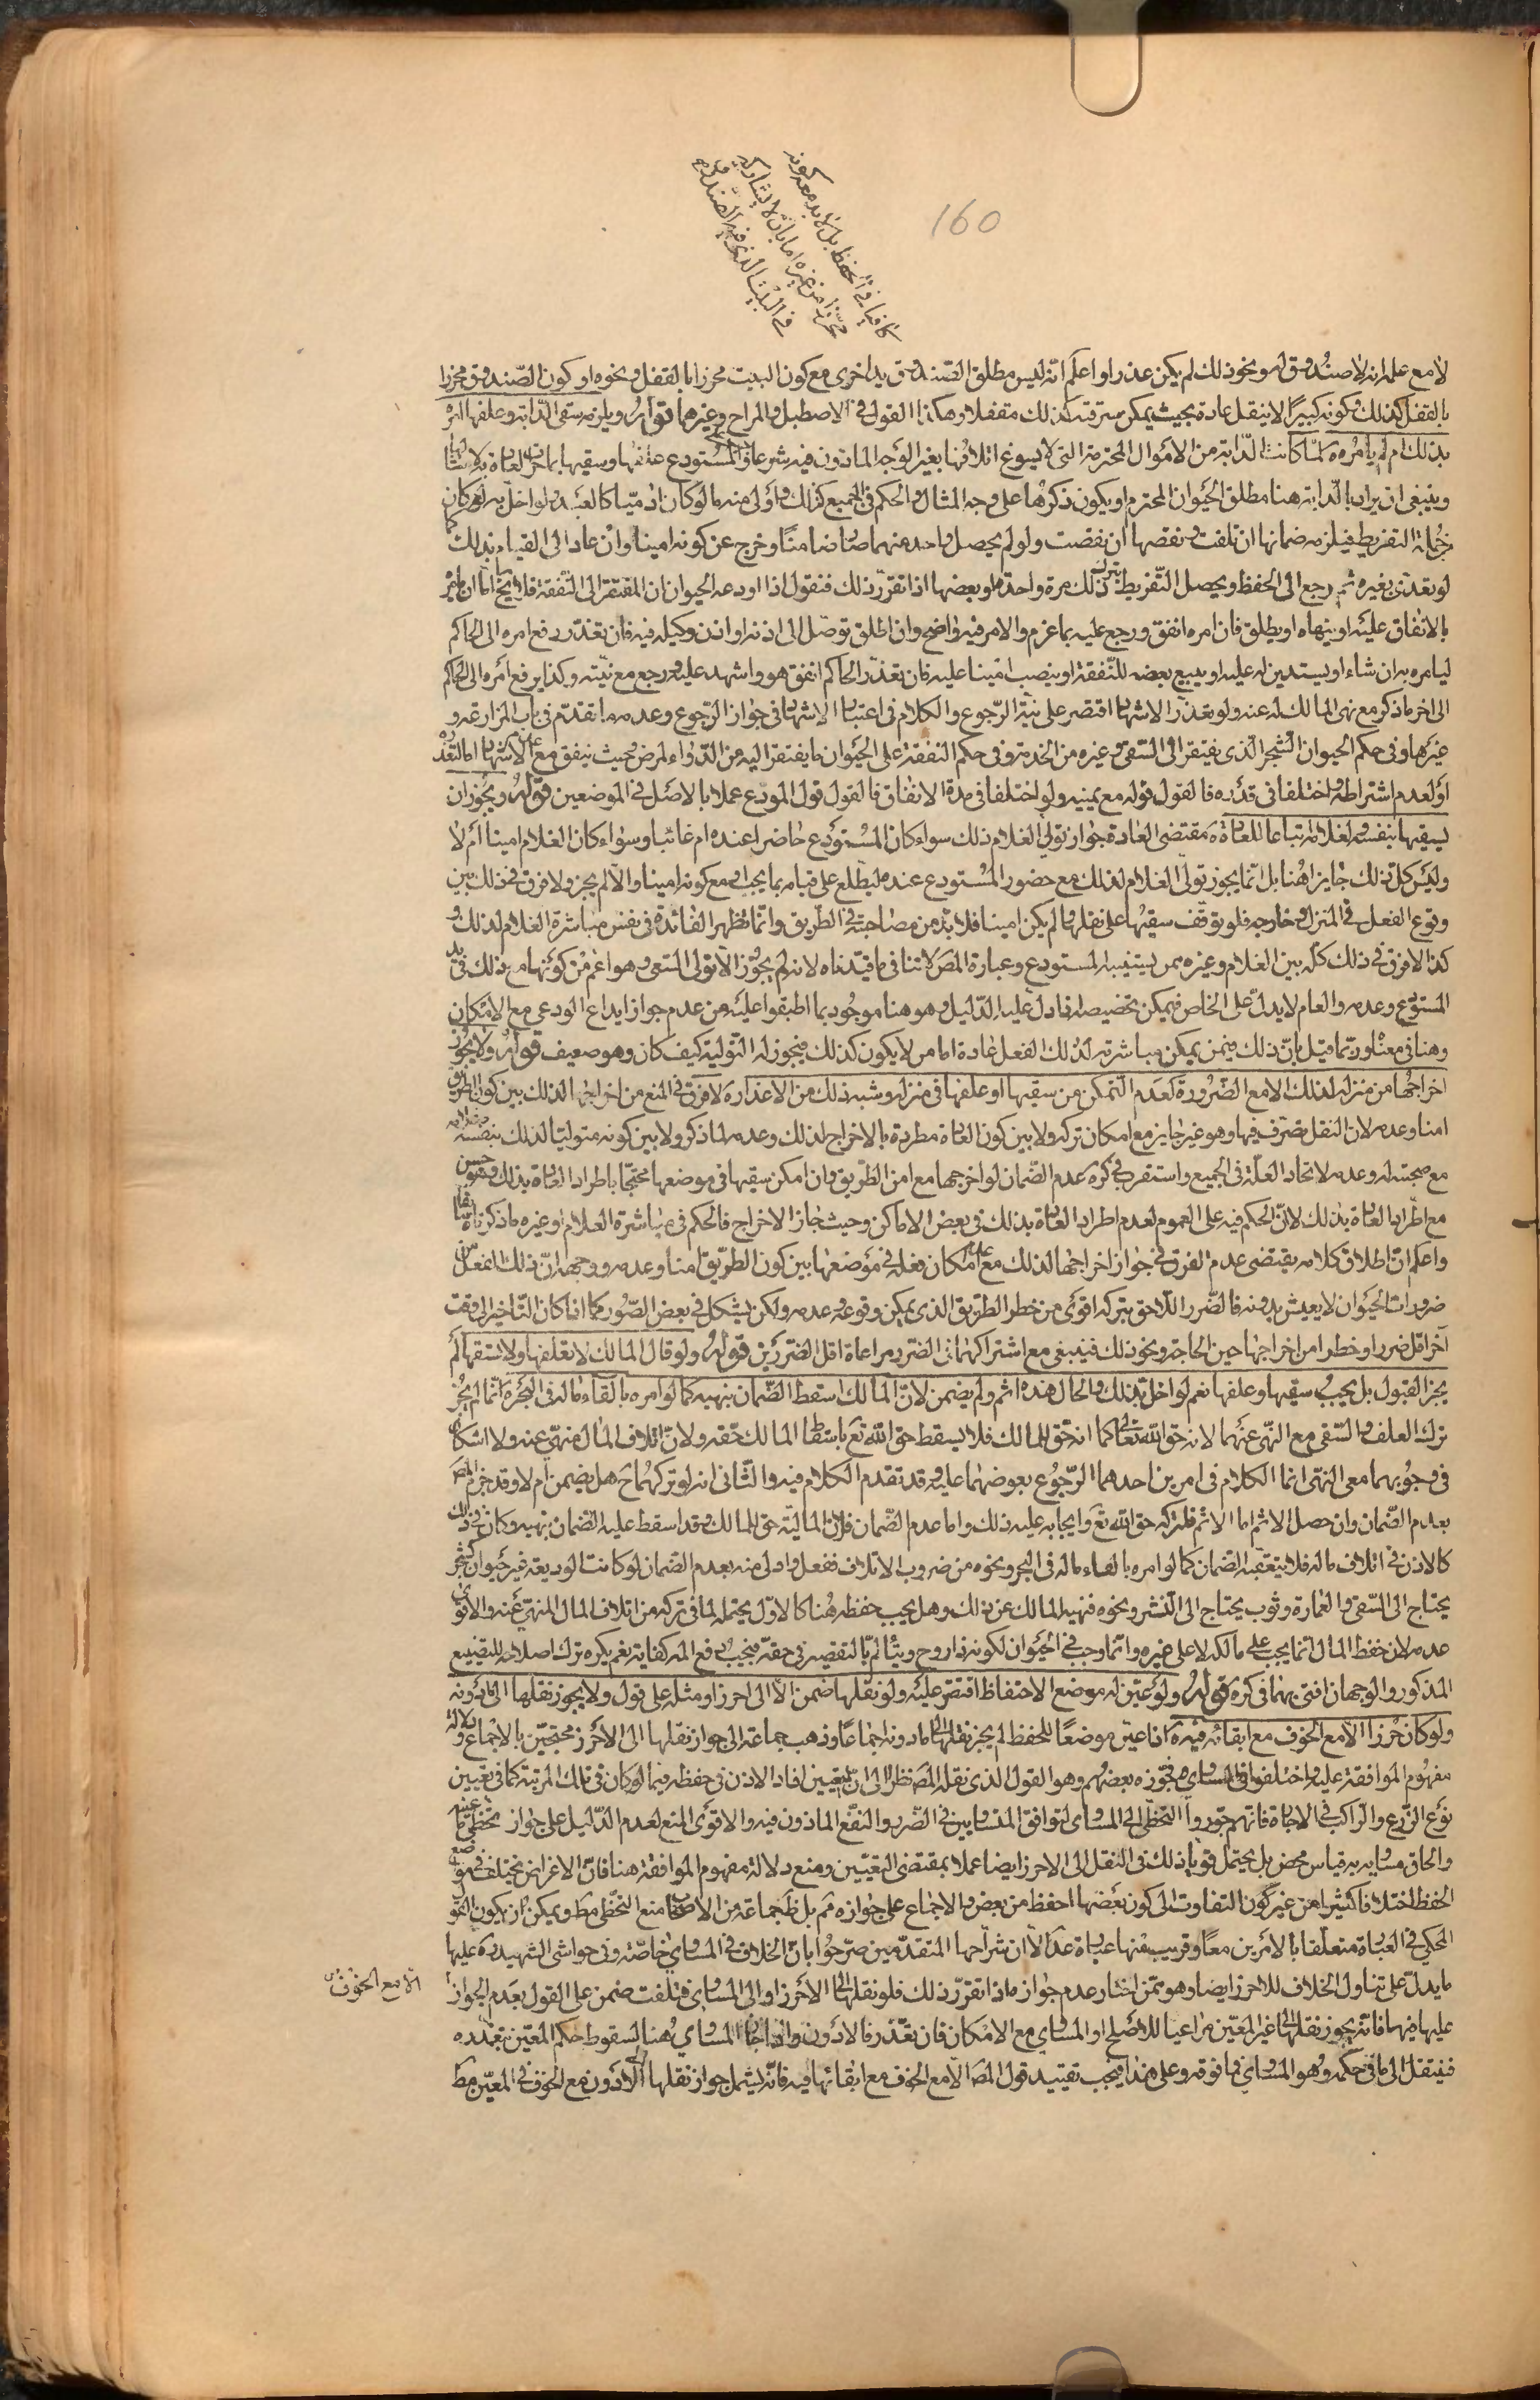 160
كافيا في الحفظ بل لا بد معه كونه
محرزا من غيره اما بان لا يشاركه
في البيت الذي فيه الصندوق
لا مع علمه انه لا صندوق له ونحو ذلك لم يكن عذرا واعلم انه ليس مطلق الصندوق يد اخرى مع كون البيت محرزا بالقفل ونحوه او كون الصندوق محرزا
بالقفل كذلك وكونه كبيرا لا ينتقل عادة بحيث يمكن سرقته كذلك مقفلا وهكذا القول في الاصطبل والمراح وغيرهما قوله ويلزمه سقى الدابة وعلفها امره
بذلك ام لم يأمره لما كانت الدابة من الاموال المحترمة التي لا يسوغ اتلافها بغير الوجه الماذون فيه شرعا فالمستودع علفها وسقيها بما جرت العادة به لامثالها
وينبغي ان يراد بالدابة هنا مطلق الحيوان المحترم او يكون ذكرها على وجه المثال والحكم في الجميع كذلك واولى منه ما لو كان ادميا كالعبد ولو اخل به لعد كان
بحكم التفريط فيلزمه ضمانها ان تلفت ونقصها ان نقصت ولو لم يحصل واحد منهما صار ضامنا وخرج عن كونه امينا وان عاد الى القيام بذلك كما
لو تعدى بغيره ثم رجع الى الحفظ ويحصل التفريط بترك ذلك مرة واحدة او بعضها اذا تقرر ذلك فنقول اذا اودعه الحيوان المفتقر الى النفقة فلا يخ اما ان يامره
بالانفاق عليه او ينهاه او يطلق فان امره انفق ورجع عليه بما غرم والامر فيه واضح وان اطلق توصل الى اذنه او اذن وكيله فيه فان تعذر رفع امره الى الحاكم
ليامره به ان شاء او يستدين له عليه او يبيع بعضه للنفقة او ينصب امينا عليه فان تعذر الحاكم انفق هو واشهد عليه ورجع مع نيته وكذا يرفع امره الى الحاكم
الى اخر ما ذكر مع نهى المالك له عنه ولو تعذر الاشهاد اقتصر على نية الرجوع والكلام في اعتبار الاشهاد في جواز الرجوع وعدمه ما تقدم في باب المزارعة و
غيرها وفي حكم الحيوان الشجر الذي يفتقر الى السقى وغيره من الخدمة وفي حكم النفقة على الحيوان ما يفتقر اليه من الدواء لمرض وحيث ينفق مع عدم الاشهاد اما لتعذره
او لعدم اشتراطه واختلفا في قدره فالقول قوله مع يمينه ولو اختلفا في مدة الانفاق فالقول قول المودع عملا بالاصل في الموضعين قوله ويجوز ان
يسقيها بنفسه وبغلامه اتباعا للعادة مقتضى العادة جواز تولى الغلام ذلك سواء كان المستودع حاضرا عنده ام غائبا وسواء كان الغلام امينا ام لا
وليس كل ذلك جايزا هنا بل انما يجوز تولى الغلام لذلك مع حضور المستودع عنده ليطلع على قيامه بما يجب او مع كونه امينا والا لم يجز ولا فرق في ذلك بين
وقوع الفعل في المنزل وخارجه فلو توقف سقيها على نقلها ولم يكن امينا فلا بد من مصاحبته في الطريق وانما تظهر الفائدة في نفس مباشرة الغلام لذلك و
كذا لا فرق في ذلك كله بين الغلام وغيره ممن يستنيبه المستودع وعبارة المص لا تنافى ما قيدناه لانه لم يجوز الا تولى السقى وهو اعم من كونها مع ذلك في يد
المستودع وعدمه والعام لا يدل على الخاص فيمكن تخصيصه بما دل عليه الدليل وهو هنا موجود بما اطبقوا عليه من عدم جواز ايداع الودعى مع الامكان
وهنا في معناه وربما قيل بان ذلك فيمن يمكن مباشرته لذلك الفعل عادة اما من لا يكون كذلك فيجوز له التولية كيف كان وهو ضعيف قوله ولا يجوز
اخراجها من منزله لذلك الا مع الضرورة كعدم التمكن من سقيها او علفها في منزله وشبه ذلك من الاعذار لا فرق في المنع من اخراجها لذلك بين كون الطريق
امنا وعدمه لان النقل تصرف فيها وهو غير جايز مع امكان تركه ولا بين كون العادة مطردة بالاخراج لذلك وعدمه لما ذكر ولا بين كونه متوليا لذلك بنفسه
مع صحبته له وعدمه لاتحاد العلة في الجميع واستقرب في كره عدم الضمان لو اخرجها مع امن الطريق وان امكن سقيها في موضعها محتجا باطراد العادة بذلك وهو حسن
مع اطراد العادة بذلك لان الحكم فيه على العموم لعدم اطراد العادة بذلك في بعض الاماكن وحيث جاز الاخراج فالحكم في مباشرة الغلام او غيره ما ذكرناه سابقا
واعلم ان اطلاق كلامه يقتضى عدم الفرق في جواز اخراجها لذلك مع عدم امكان فعله في موضعها بين كون الطريق امنا وعدمه ووجهه ان ذلك الفعل من
ضرورات الحيوان لا يعيش بدونه فالضرر اللاحق بتركه اقوى من خطر الطريق الذي يمكن وقوعه وعدمه ولكن يشكل في بعض الصور كما اذا كان التاخير الى وقت
آخر اقل ضررا وخطرا من اخراجها حين الحاجة ونحو ذلك فينبغي مع اشتراكهما في الضرر مراعاة اقل الضررين قوله ولو قال المالك لا تعلفها ولا تسقها لم
يجز القبول بل يجب سقيها وعلفها نعم لو اخل بذلك والحال هذه اثم ولم يضمن لان المالك اسقط الضمان بنهيه كما لو امره بالقاء ماله في البحر انما لم يجز
ترك العلف والسقى مع النهى عنهما لانه حق الله تعالى كما انه حق للمالك فلا يسقط حق الله تع باسقاط المالك حقه ولان اتلاف المال منهى عنه ولا اشكال
في وجوبهما مع النهى انما الكلام في امرين احدهما الرجوع بعوضهما عليه وقد تقدم الكلام فيه والثانى انه لو تركهما ح هل يضمن ام لا وقد جزم المص
بعدم الضمان وان حصل الاثم اما الاثم فلتركه حق الله تع وايجابه عليه ذلك واما عدم الضمان فلان المالية حق للمالك وقد اسقط عليه الضمان بنهيه وكان في ذلك
كالاذن في اتلاف ماله فلا يتعقبه الضمان كما لو امره بالقاء ماله في البحر ونحوه من ضروب الاتلاف ففعل واولى منه بعدم الضمان لو كانت الوديعة غير حيوان كشجر
يحتاج الى السقى والعمارة وثوب يحتاج الى النشر ونحوه فنهيه المالك عن ذلك وهل يجب حفظه هنا كالاول يحتمله لما في تركه من اتلاف المال المنهى عنه والاقوى
عدمه لان حفظ المال انما يجب على مالكه لا على غيره وانما وجب في الحيوان لكونه ذا روح ويتالم بالتقصير في حقه فيجب دفع المه كفاية نعم يكره ترك اصلاحه للتضييع
المذكور والوجهان افتى بهما في كره قوله ولو عين له موضع الاحتفاظ اقتصر عليه ولو نقلها ضمن الا الى احرز او مثله على قول ولا يجوز نقلها الى ما دونه
ولو كان حرزا الا مع الخوف مع ابقائه فيه اذا عين موضعا للحفظ لم يجز نقلها الى ما دونه اجماعا وذهب جماعة الى جواز نقلها الى الاحرز محتجين بالاجماع ودلالة
مفهوم الموافقة عليه واختلفوا في المساوي فجوزه بعضهم وهو القول الذي نقله المص نظرا الى ان التعيين افاد الاذن في حفظه فيما لو كان في تلك المرتبة كما في تعيين
نوع الزرع والراكب في الاجارة فانهم جوزوا التخطى الى المساوي لتوافق المتساويين في الضرر والنفع الماذون فيه والاقوى المنع لعدم الدليل على جواز تخطى ما عينه
والحاق مساويه به قياس محض بل يحتمل قويا ذلك في النقل الى الاحرز ايضا عملا بمقتضى التعيين ومنع دلالة مفهوم الموافقة هنا فان الاغراض تختلف في مواضع
الحفظ اختلافا كثيرا من غير كون التفاوت الى كون بعضها احفظ من بعض والاجماع على جوازه مم بل ظ جماعة من الاصحاب منع التخطى مط ويمكن ان يكون القول
المحكي في العبارة متعلقا بالامرين معا وقريب منها عبارة عد الا ان شراحها المتقدمين صرحوا بان الخلاف في المساوي خاصة وفي حواشى الشهيد ره عليها
ما يدل على تناول الخلاف للاحرز ايضا وهو ممن اختار عدم جوازه اذا تقرر ذلك فلو نقلها الى الاحرز او الى المساوي فتلفت ضمن على القول بعدم الجواز
الا مع الخوف
عليها فيها فانه يجوز نقلها الى غير المعين مراعيا للاصلح او المساوي مع الامكان فان تعذر فالادون وانما جاز المساوي هنا لسقوط حكم المعين بتعذره
فينتقل الى ما في حكمه وهو المساوي فما فوقه وعلى هذا فيجب تقييد قول المص الا مع الخوف مع ابقائها فيه فانه يشمل جواز نقلها الى الادون مع الخوف في المعين مط